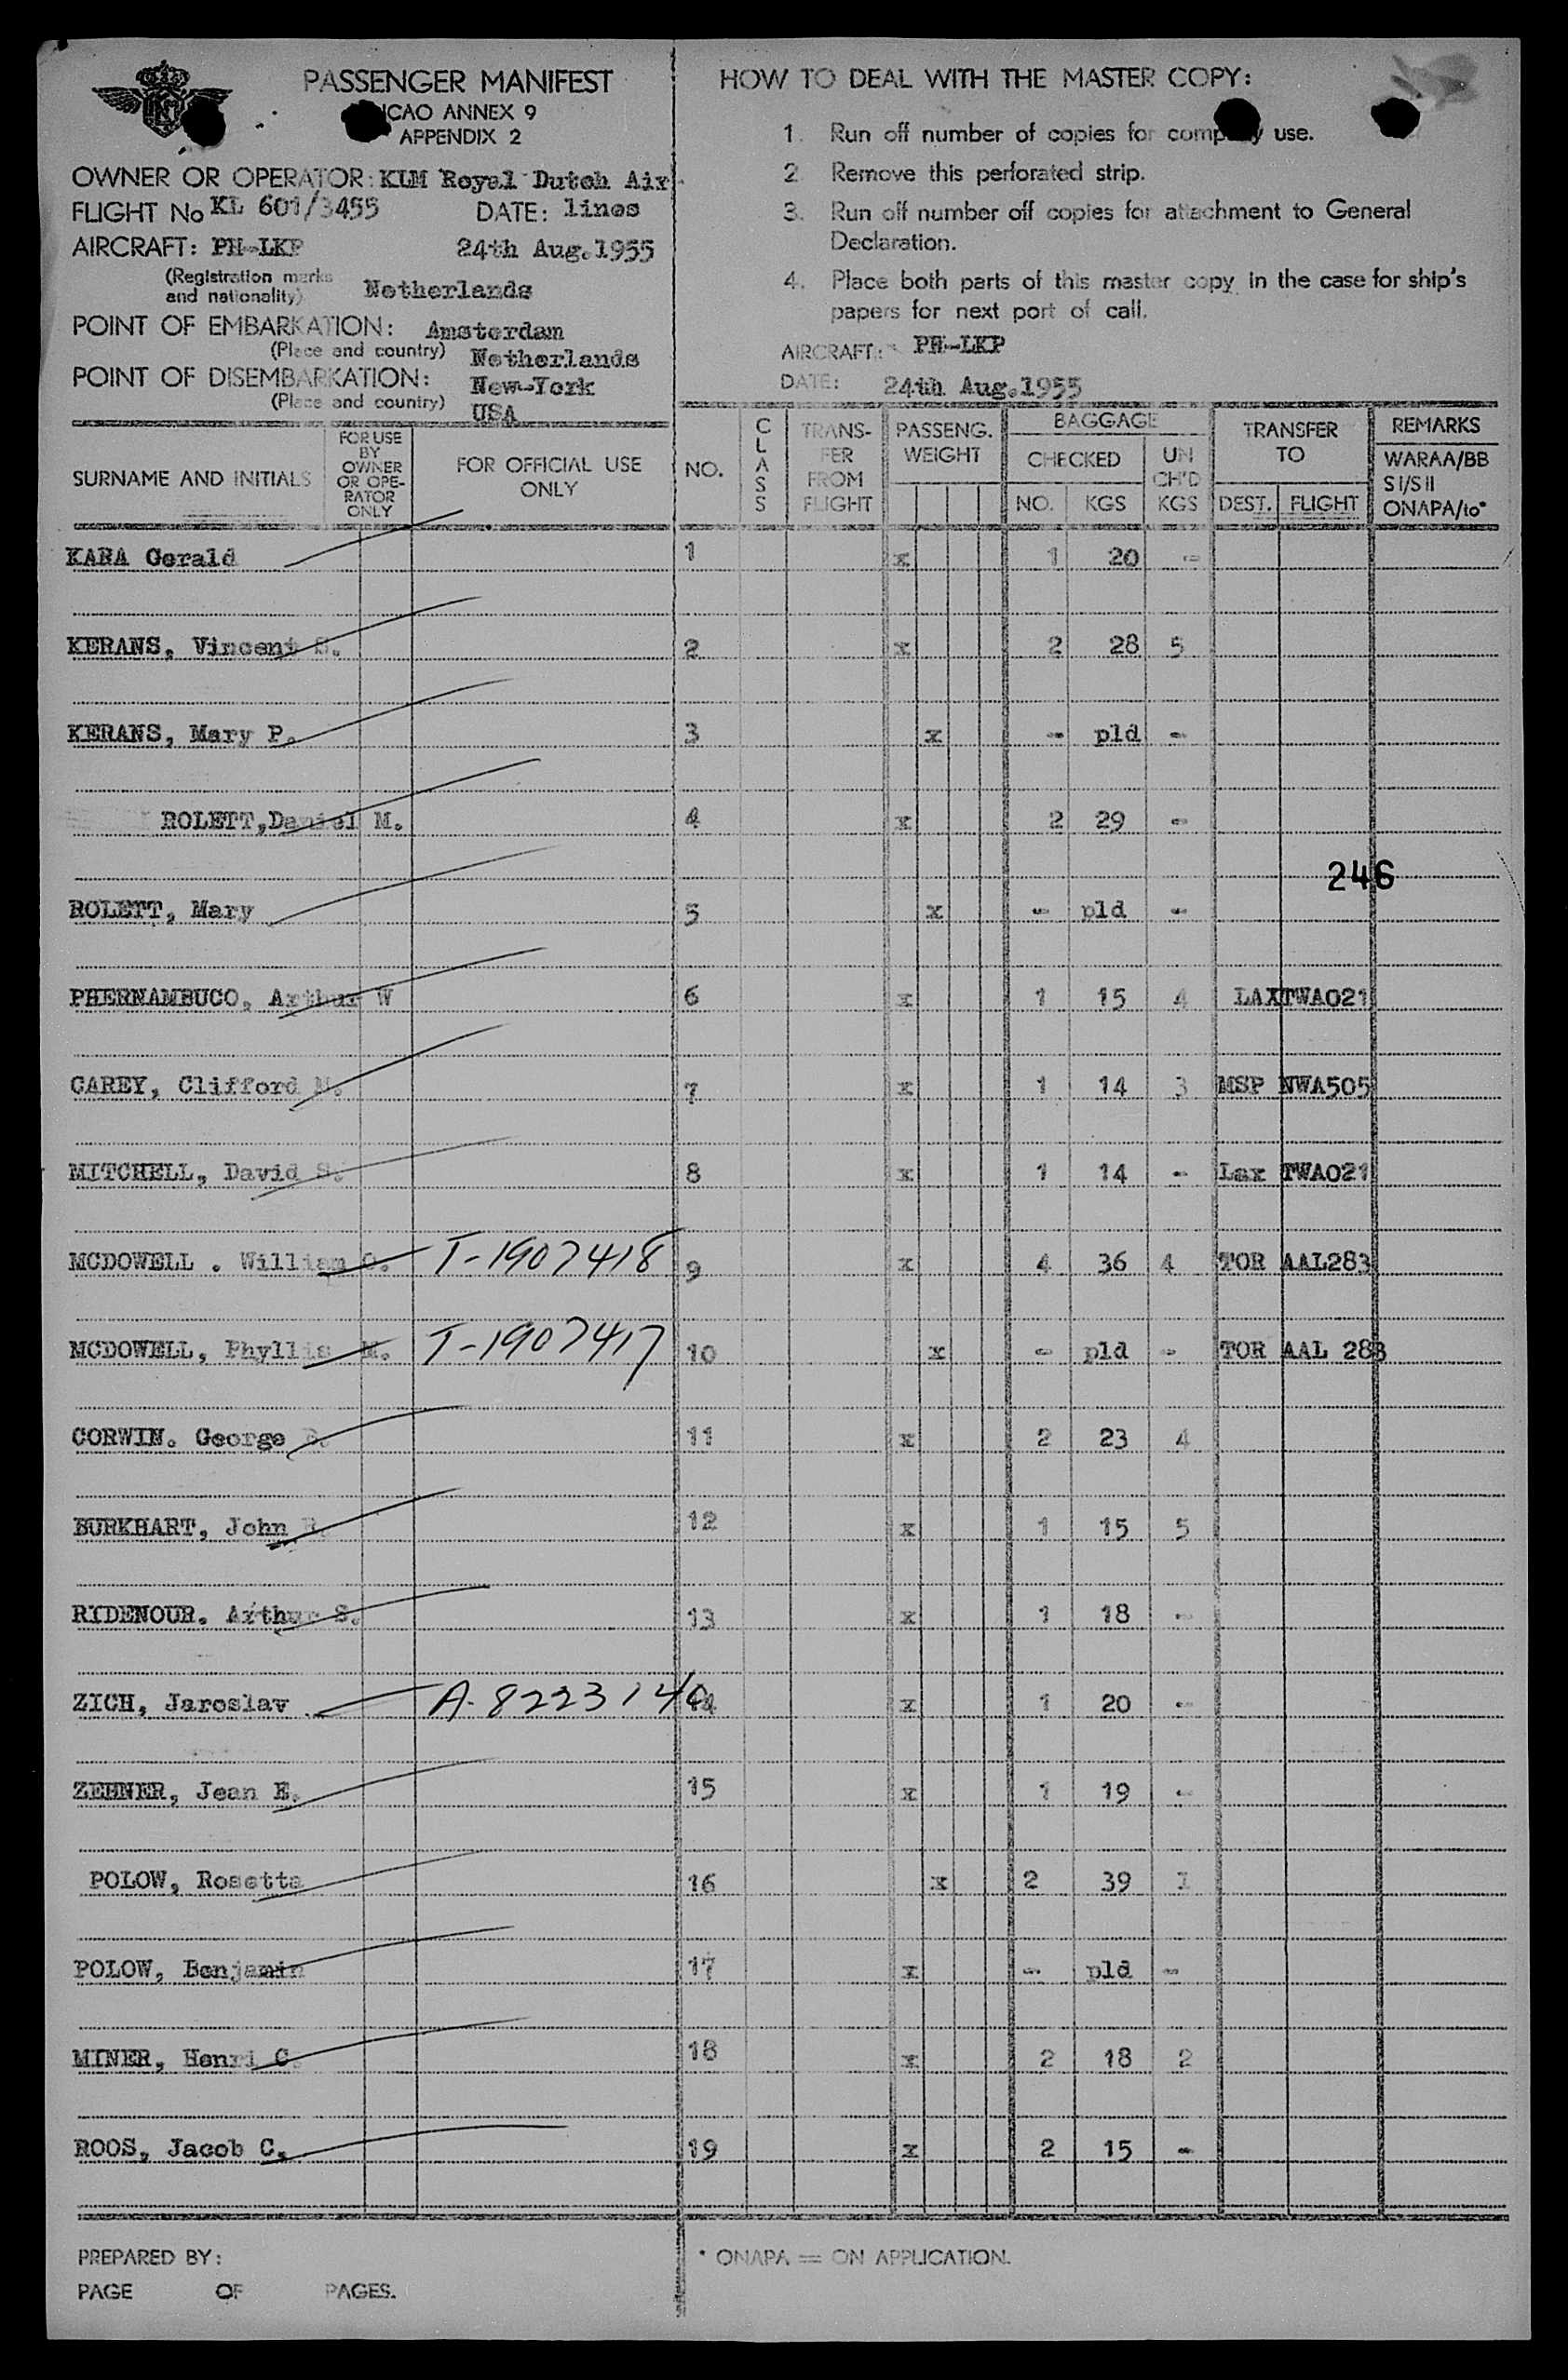 PASSENGER MANIFEST
ICAO ANNEX 9
APPENDIX 2
OWNER OR OPERATOR: KLM Royal Dutch Air
FLIGHT No KL 601/3455 DATE: lines
AIRCRAFT: PH-LKP 24th Aug.1955
(Registration marks
and nationality) Netherlands
POINT OF EMBARKATION: Amsterdam
(Place and country) Netherlands
POINT OF DISEMBARKATION: New-York
(Place and country) USA
HOW TO DEAL WITH THE MASTER COPY:
1. Run off number of copies for company use.
2. Remove this perforated strip.
3. Run off number off copies for attachment to General
Declaration.
4. Place both parts of this master copy in the case for ship's
papers for next port of call.
AIRCRAFT: PH-LKP
DATE: 24th Aug.1955
SURNAME AND INITIALS
FOR USE
BY
OWNER
OR OPE-
RATOR
ONLY
FOR OFFICIAL USE
ONLY
NO.
CLASS
TRANS-
FER
FROM
FLIGHT
PASSENG.
WEIGHT
BAGGAGE
CHECKED
NO. KGS
UN
CH'D
KGS
TRANSFER
TO
DEST. FLIGHT
REMARKS
WARAA/BB
SI/SII
ONAPA/to*
KARA Gerald 1 x 1 20 -
KERANS, Vincent S. 2 x 2 28 5
KERANS, Mary P. 3 x - pld -
ROLETT,Daniel M. 4 x 2 29 -
246
ROLETT, Mary 5 x - pld -
PHERNAMBUCO, Arthur W 6 x 1 15 4 LAXTWA021
CAREY, Clifford M. 7 x 1 14 3 MSP NWA505
MITCHELL, David S. 8 x 1 14 - Lax TWA021
MCDOWELL . William O. T-1907418 9 x 4 36 4 TOR AAL283
MCDOWELL, Phyllis M. T-1907417 10 x - pld - TOR AAL 283
CORWIN. George 11 x 2 23 4
BURKHART, John 12 x 1 15 5
RIDENOUR. Arthur S. 13 x 1 18 -
ZICH, Jaroslav A-8223140 14 x 1 20 -
ZEHNER, Jean E. 15 x 1 19 -
POLOW, Rosetta 16 x 2 39 1
POLOW, Benjamin 17 x - pld -
MINER, Henri C. 18 x 2 18 2
ROOS, Jacob C. 19 x 2 15 -
PREPARED BY:
PAGE OF PAGES.
* ONAPA = ON APPLICATION.